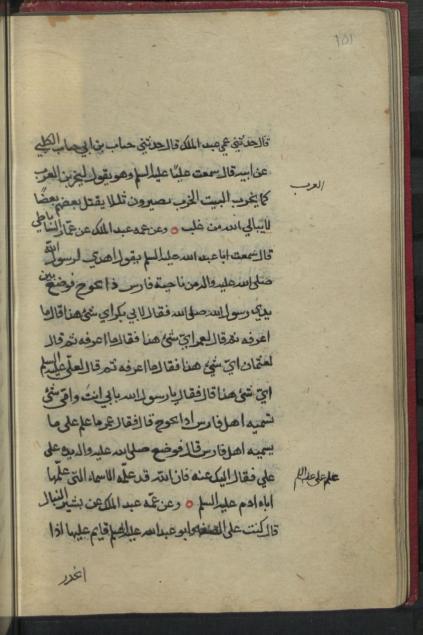 ١٥١
قال حدثني عمي عبد الملك قال حدثني حباب بن ابي حباب الكلبي
عن ابيه قال سمعت عليا عليه السلم وهو يقول ليخربن العرب
العرب
كما يخرب البيت الخرب يصيرون ثللا يقتل بعضهم بعضا
لا يبالي الله من غلب وعن عمه عبد الملك عن عمار الساباطي
قال سمعت ابا عبد الله عليه السلم يقول اهدي لرسول الله
صلى الله عليه واله من ناحية فارس فوضع بين
يدي رسول الله صلى الله فقال لابي بكر اي شئ هذا قال ما
اعرفه ثم قال لعمر اي شئ هذا فقال ما اعرفه ثم قال
لعثمان اي شئ هذا فقال ما اعرفه ثم قال لعلي عليه السلم
اي شئ هذا قال فقال يا رسول الله بابي انت واي شئ
تسميه اهل فارس قال فقال عمر ما علم على ما
يسميه اهل فارس قال فوضع صلى الله عليه واله يده على
علي فقال اليك عنه فان الله قد علمه الاسماء التي علمها
علم علي عليه السلم
اباه ادم عليه السلم وعن عمه عبد الملك عن بشير النبال
قال كنت على وابو عبد الله عليه السلم قايم عليها اذا